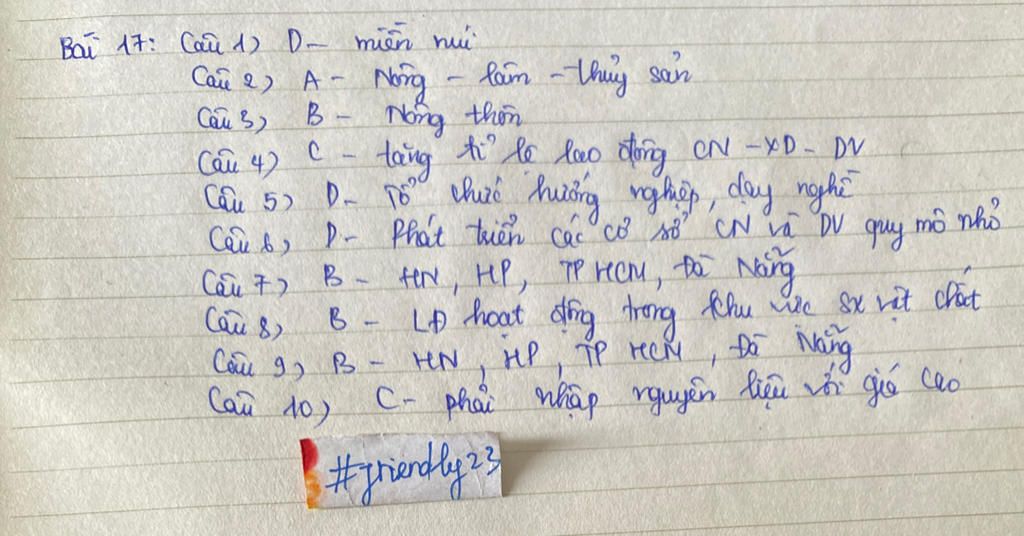 Bài 17: Câu 1) D - miền núi
Câu 2) A - Nông - lâm - thủy sản
Câu 3) B - Nông thôn
Câu 4) C - tăng tỉ lệ lao động CN - XD - DV
Câu 5) D - Tổ chức hướng nghiệp, dạy nghề
Câu 6) D - Phát triển các cơ sở CN và DV quy mô nhỏ
Câu 7) B - HN, HP, TP HCM, Đà Nẵng
Câu 8) B - LĐ hoạt động trong khu vực sx vật chất
Câu 9) B - HN, HP, TP HCM, Đà Nẵng
Câu 10) C - phải nhập nguyên liệu với giá cao
#friendly23